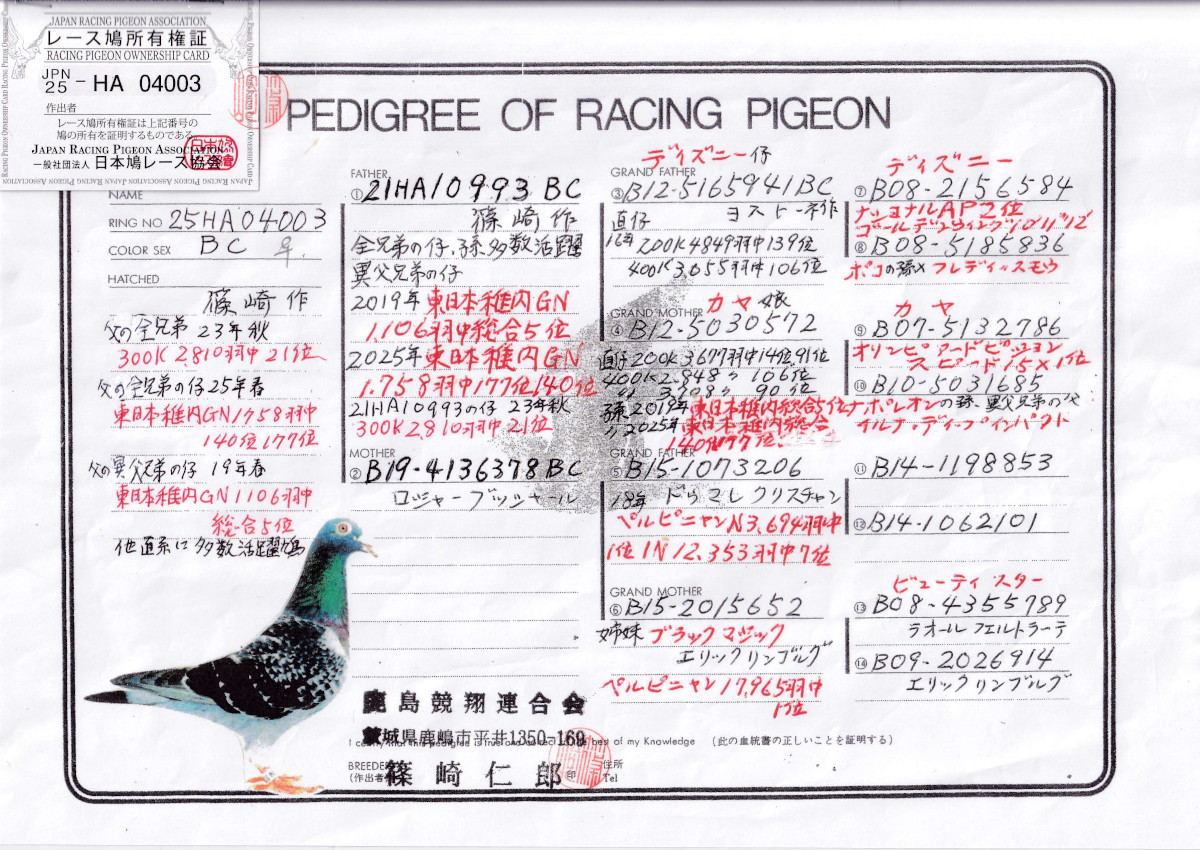 JAPAN RACING PIGEON ASSOCIATION
レース鳩所有権証
RACING PIGEON OWNERSHIP CARD
JPN
25 - HA 04003
作出者
レース鳩所有権証は上記番号の
鳩の所有を証明するものである
JAPAN RACING PIGEON ASSOCIATION
一般社団法人 日本鳩レース協会
PEDIGREE OF RACING PIGEON
NAME
RING NO 25HA04003
COLOR SEX BC ♀
HATCHED
篠崎作
父の全兄弟 23年秋
300K 2,810羽中 21位
父の全兄弟の仔 25年春
東日本稚内GN1758羽中
140位 177位
父の異父兄弟の仔 19年春
東日本稚内GN1106羽中
総合5位
他直系に多数活躍鳩
FATHER
① 21HA10993 BC
篠崎作
全兄弟の仔、孫多数活躍
異父兄弟の仔
2019年 東日本稚内GN
1.106羽中総合5位
2025年 東日本稚内GN
1.758羽中177位140位
21HA10993の仔 23年秋
300K2,810羽中 21位
MOTHER
② B19-4136378 BC
ロジャーブッシャール
ディズニー仔
GRAND FATHER
③ B12-5165941BC
直仔 ヨストーネ作
16年 200K4849羽中139位
400K3,055羽中106位
カヤ娘
GRAND MOTHER
④ B12-5030572
直仔 200K3677羽中14位,91位
400K2,848 〃 106位
〃 3,808 〃 90位
孫 2019年東日本稚内総合5位
〃 2025年東日本稚内総合
140位177位
GRAND FATHER
⑤ B15-1073206
18年 ドゥマレ クリスチャン
ペルピニャンN3,694羽中
1位 IN 12.353羽中7位
GRAND MOTHER
⑥ B15-2015652
姉妹 ブラックマジック
エリックリンブルグ
ペルピニャン17,965羽中
1位
ディズニー
⑦ B08-2156584
ナショナルAP2位
ゴールデンウィング'10'11'12
⑧ B08-5185836
ポコの孫×フレディ×スモウ
カヤ
⑨ B07-5132786
オリンピアードピジョン
スピード15×1位
⑩ B10-5031685
ナポレオンの孫、異父兄弟の父
オルナ×ディープインパクト
⑪ B14-1198853
⑫ B14-1062101
ビューティ スター
⑬ B08-4355789
ラオール フェルトラーテ
⑭ B09-2026914
エリックリンブルグ
鹿島競翔連合会
茨城県鹿嶋市平井1350-169
I certify that this pedigree is true and correct to the best of my Knowledge (此の血統書の正しいことを証明する)
BREEDER
(作出者) 篠崎仁郎 印 住所
Tel